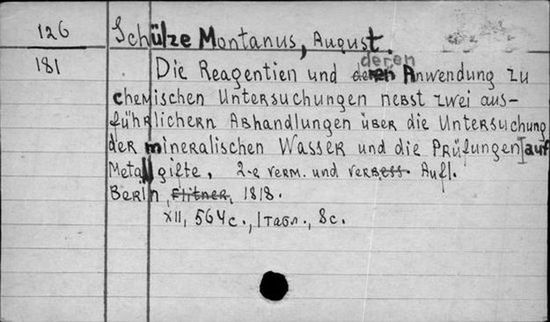 126
Schülze Montanus, August.
181
Die Reagentien und deren Anwendung zu
chemischen Untersuchungen nebst zwei aus-
führlichern Abhandlungen über die Untersuchung
der mineralischen Wasser und die Prüfungen auf
Metallgifte. 2-e verm. und verbess. Aufl.
Berlin, Flitner, 1818.
XII, 564 с., 1 табл., 8с.